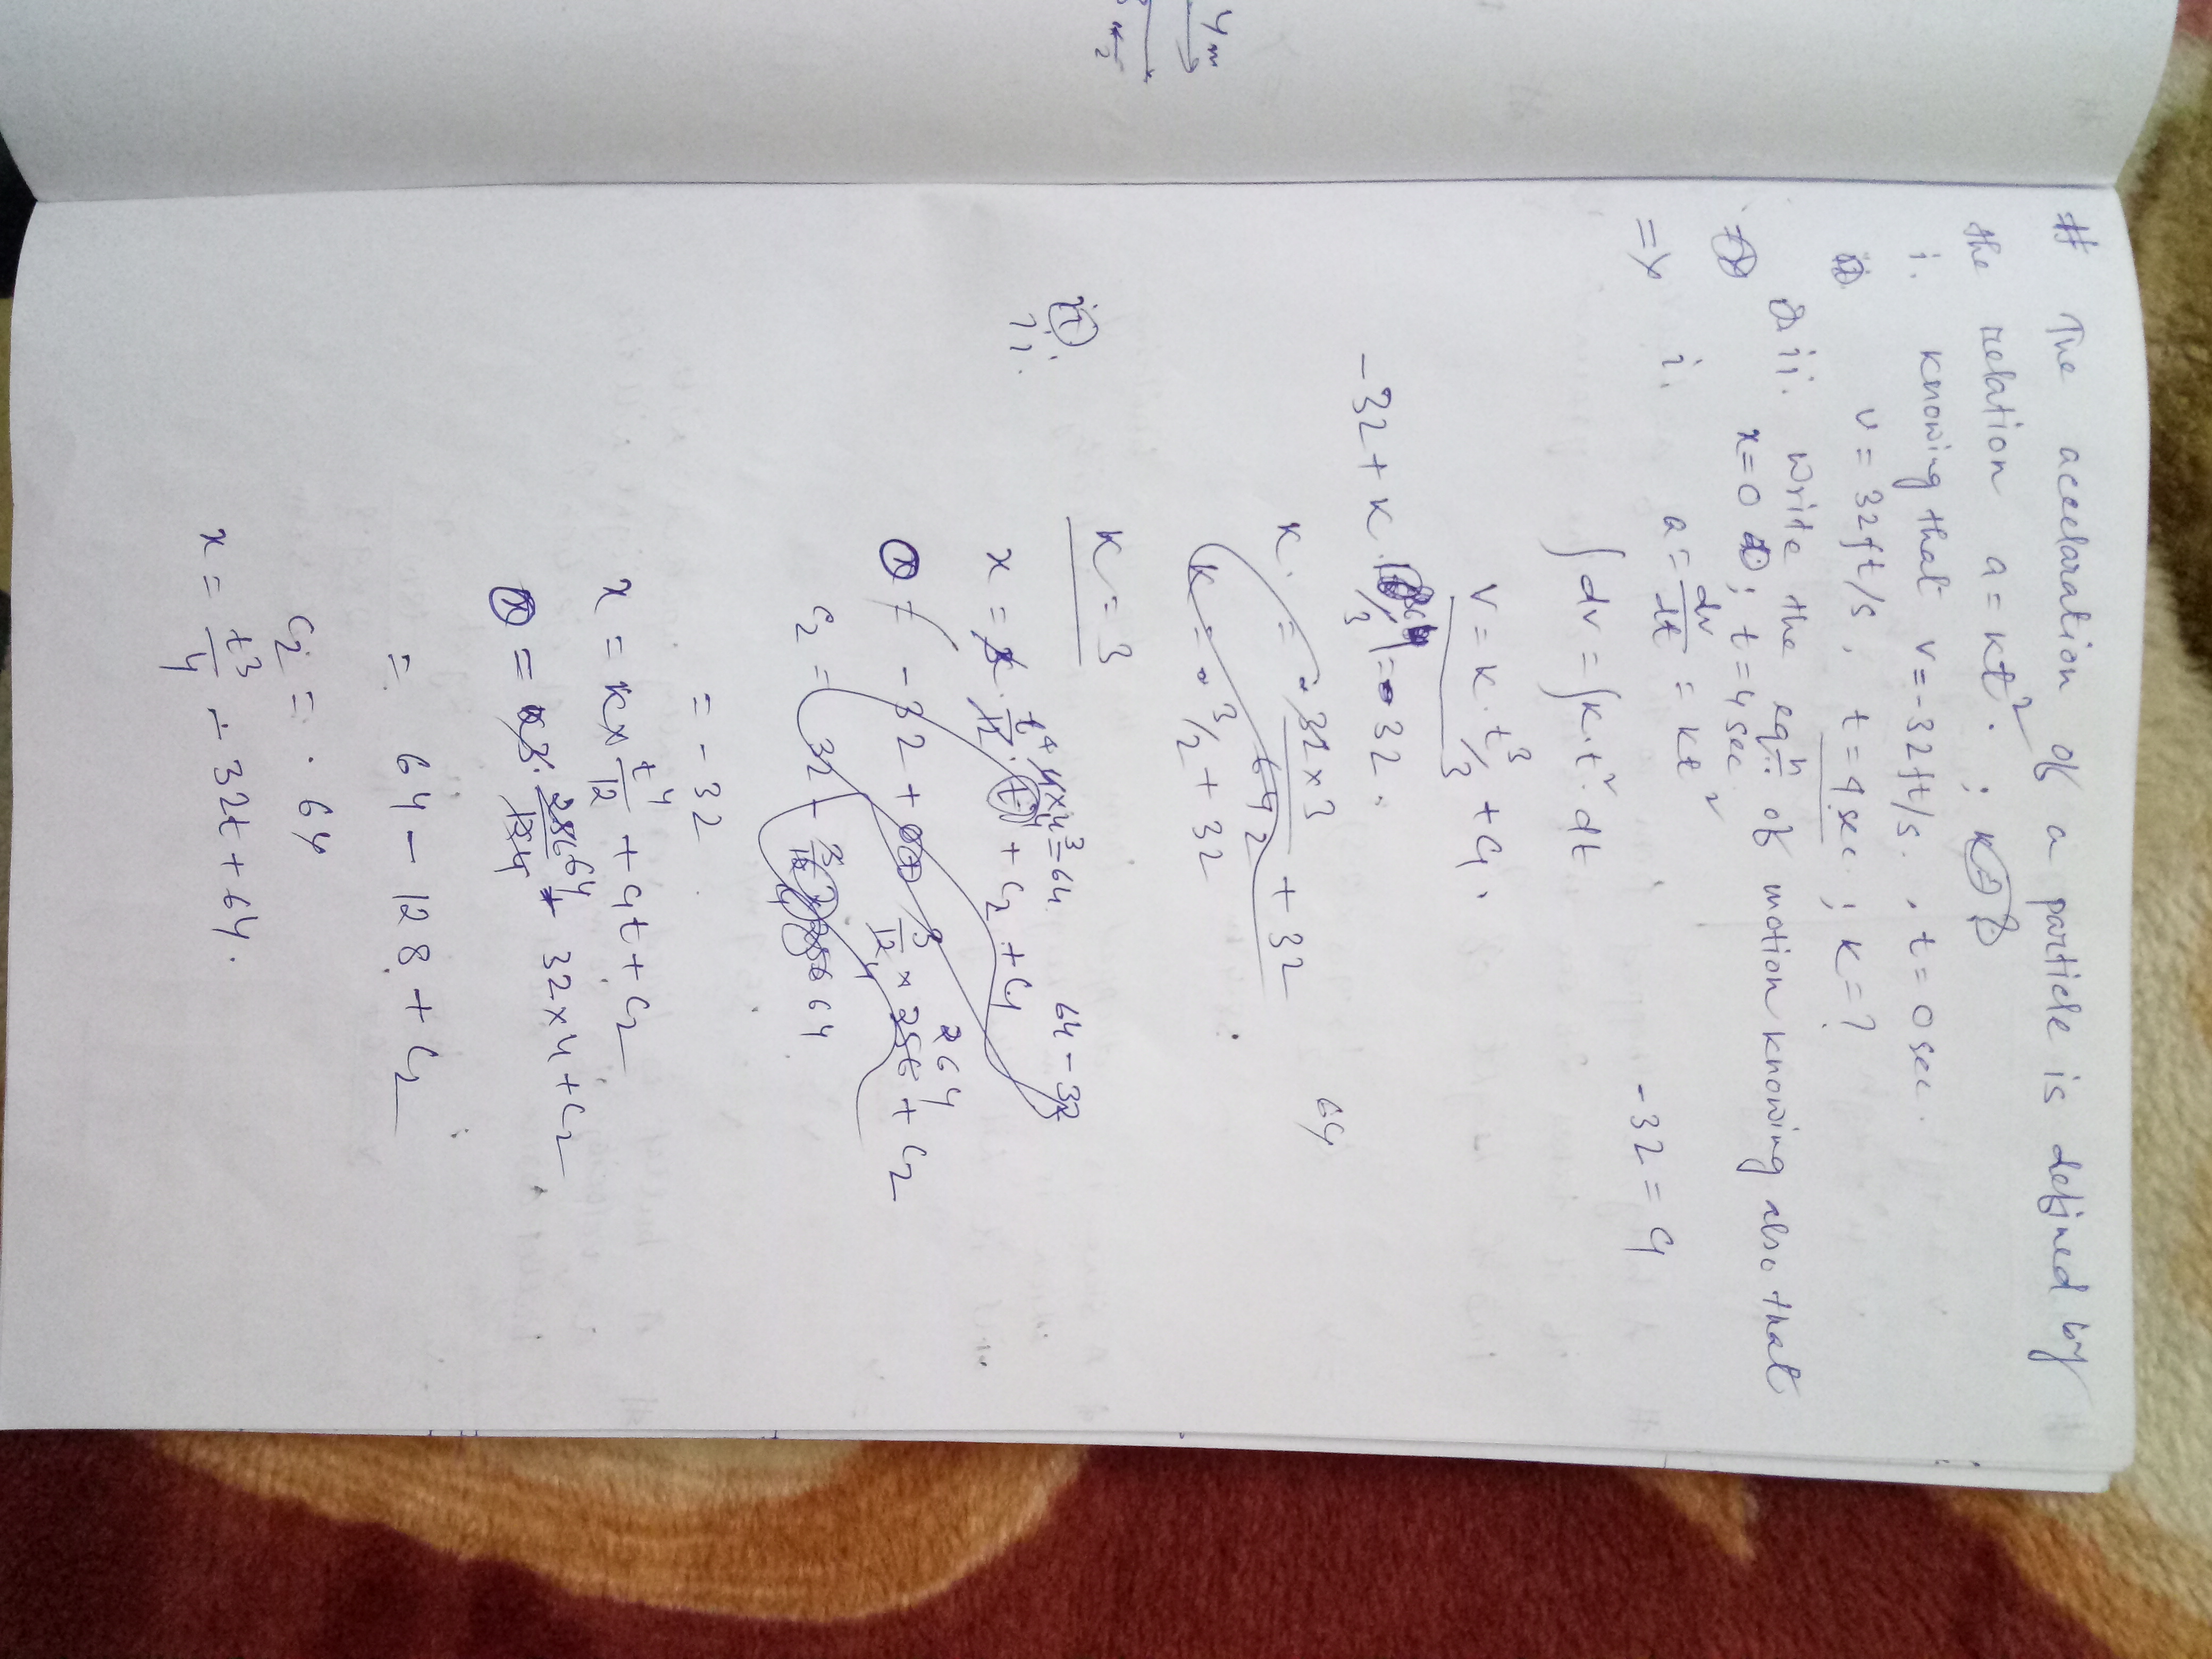 # The acceelaration of a particle is defined by
the relation a = kt². ; k = ?
i. knowing that v = -32 ft/s. , t = 0 sec.
v = 32 ft/s , t = 4 sec ; k = ?
ii. Write the eqn of motion knowing also that
x = 0 ; t = 4 sec
=> i. a = dv/dt = kt²
-32 = C₁
∫dv = ∫k.t². dt
v = k. t³/3 + C₁.
-32 + k. 64/3 = 32.
k. = 32 x 3 / 64 2 + 32
64
k = 3/2 + 32
k = 3
4 x 4³ = 64 64 - 32
ii. x = k. t⁴/12 . t⁴ + C₂ + C₁
264
x = -32 + 3/12 x 256 + C₂
C₂ = 32 - 3/12 x 256 64
= -32
x = k x t⁴/12 + C₁t + C₂
x = 3. 256 64/12 4 - 32 x 4 + C₂
= 64 - 128 + C₂
C₂ = . 64
x = t3/4 - 32t + 64.
4m